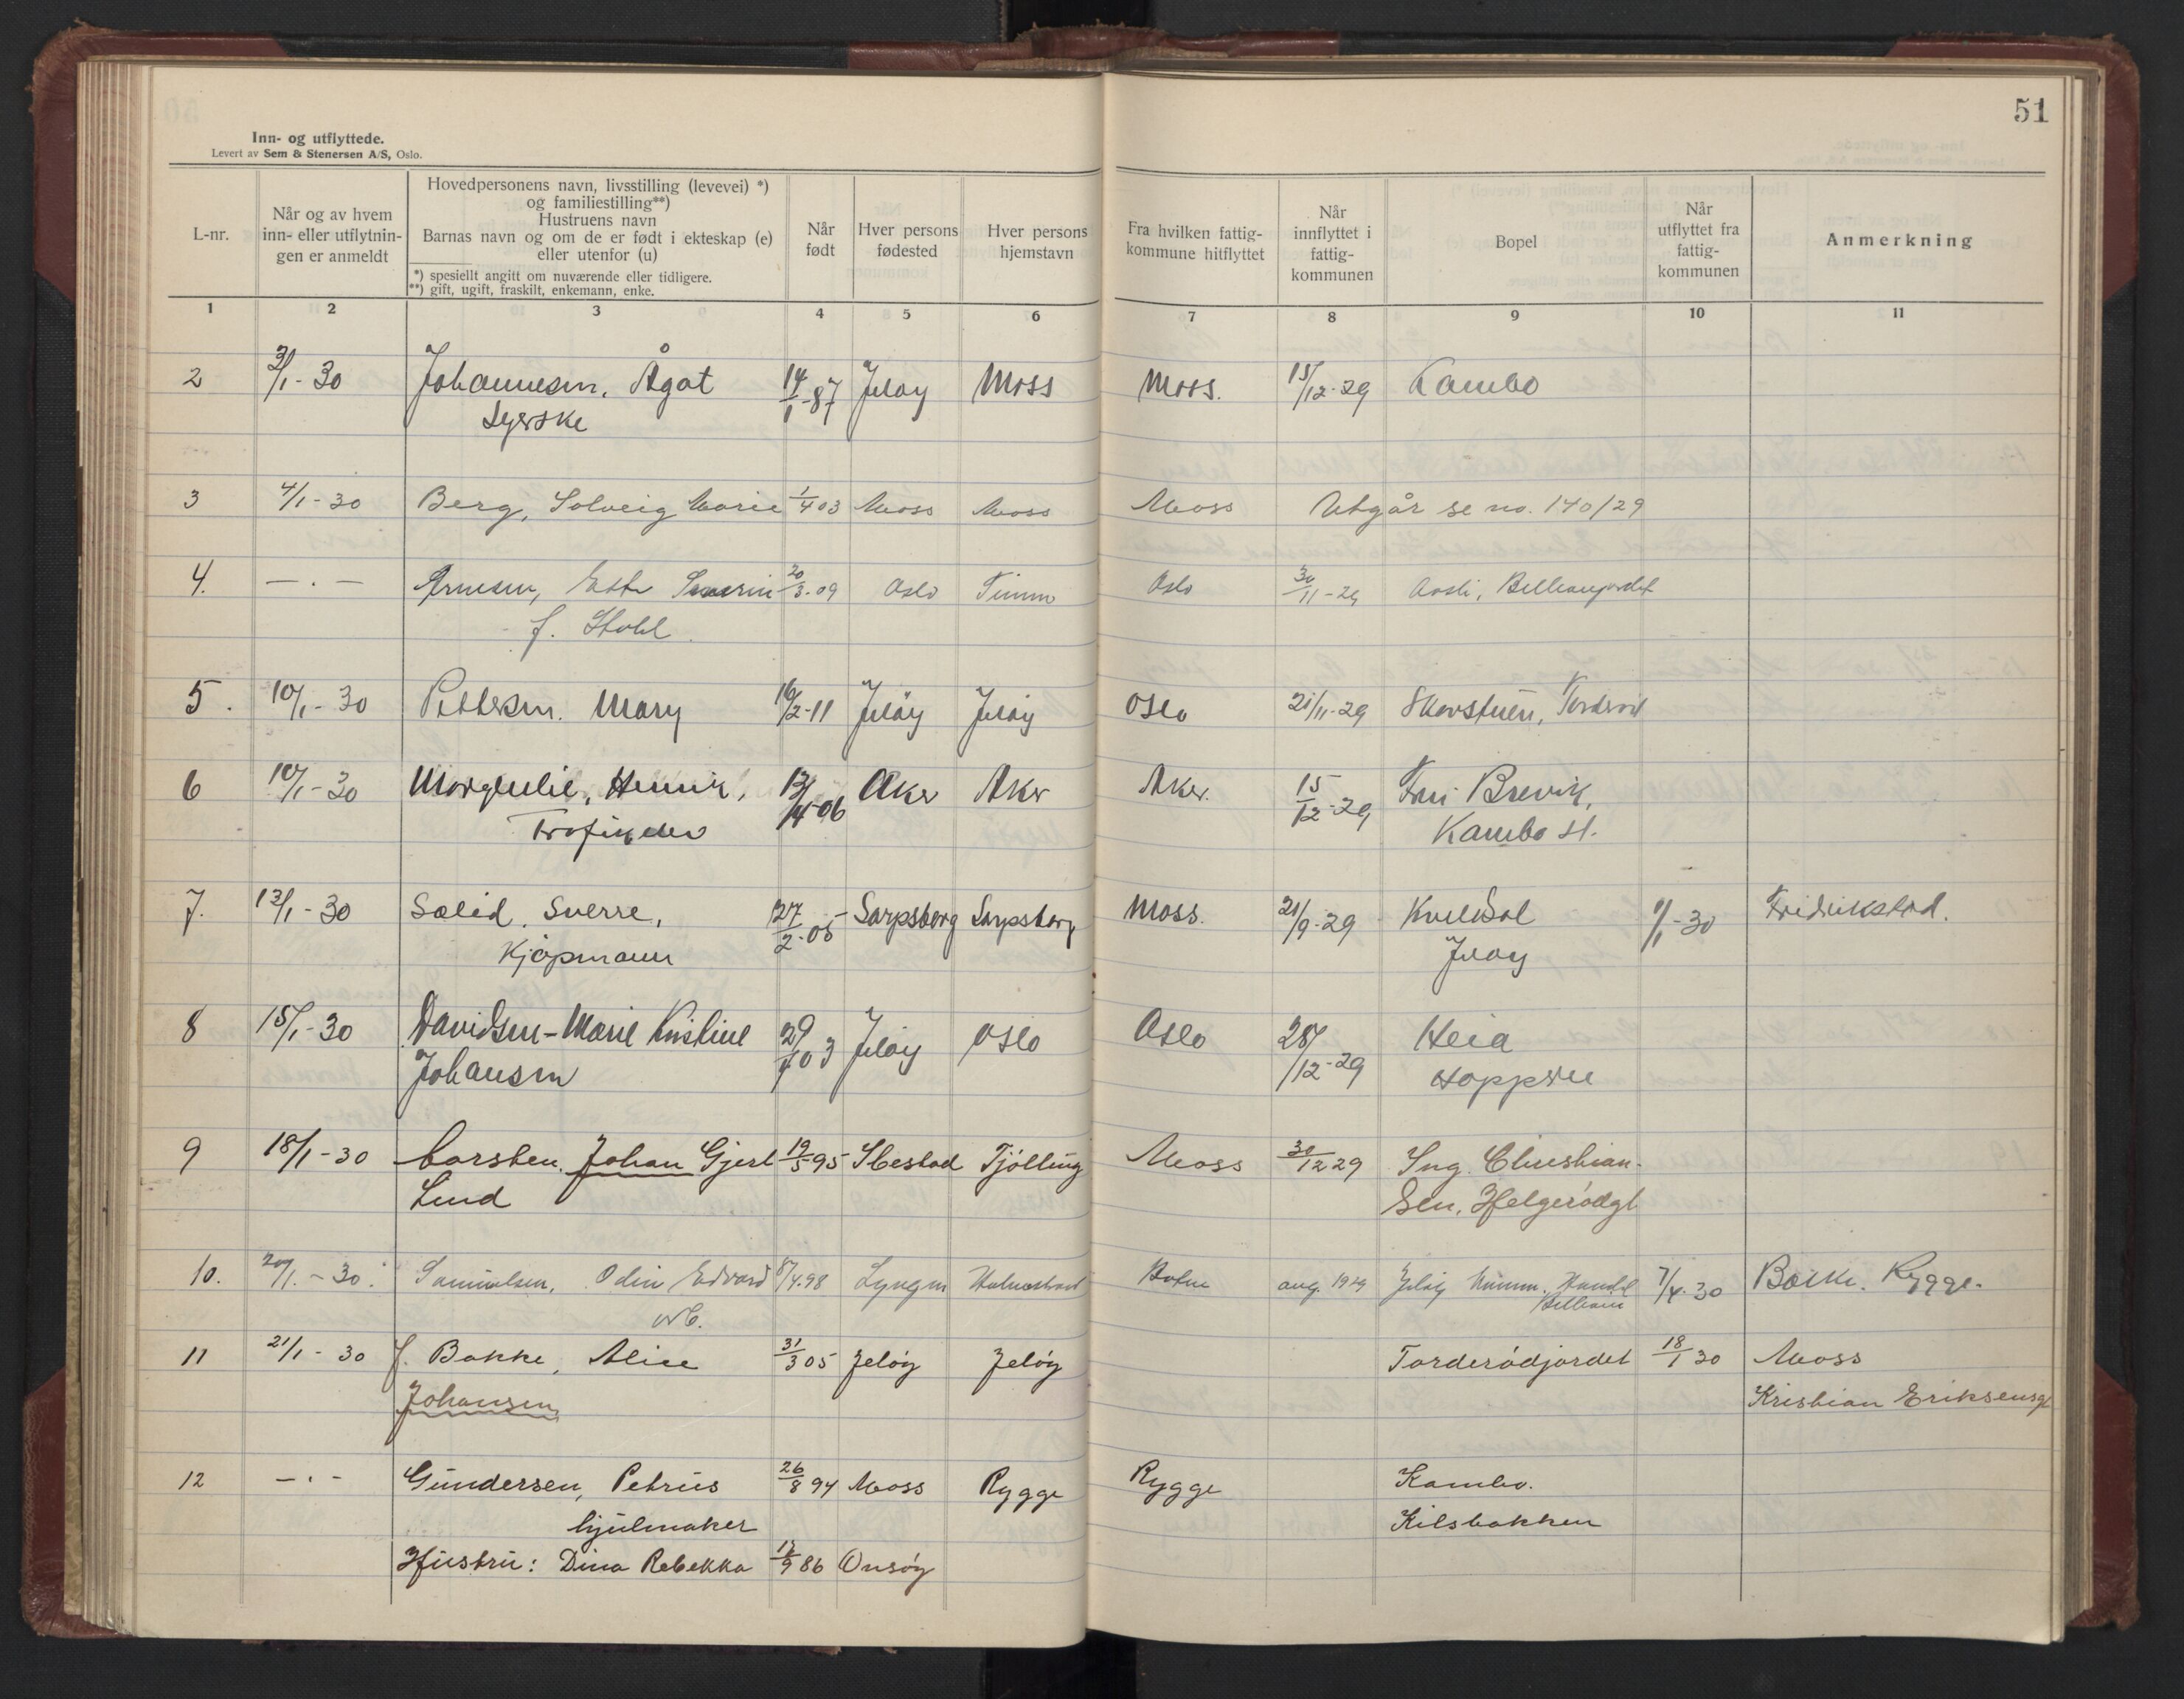 51
Inn- og utflyttede.
Levert av Sem & Stenersen A/S, Oslo.
L-nr.
Når og av hvem
inn- eller utflytnin-
gen er anmeldt
Hovedpersonens navn, livsstilling (levevei) *)
og familiestilling**)
Hustruens navn
Barnas navn og om de er født i ekteskap (e)
eller utenfor (u)
*) spesiellt angitt om nuværende eller tidligere.
**) gift, ugift, fraskilt, enkemann, enke.
Når
født
Hver persons
fødested
Hver persons
hjemstavn
Fra hvilken fattig-
kommune hitflyttet
Når
innflyttet i
fattig-
kommunen
Bopel
Når
utflyttet fra
fattig-
kommunen
Anmerkning
1 2 3 4 5 6 7 8 9 10 11
2 3/1-30 Johannesen, Ågot 14/1-87 Jeløy Moss Moss. 15/12-29 Kambo
Syerske
3 4/1-30 Berg, Solveig Marie 1/4 03 Moss Moss Moss Utgår se no. 140/29
4. — . — Arnesen, 20/3-09 Oslo Oslo 30/11-29
f.
5. 10/1-30 Pettersen. Mary 16/2-11 Jeløy Jeløy Oslo 21/11-29
6 10/1-30 Henrik, 13/4-06 Aker Aker Aker. 15/12-29 Brevik,
Kambo st.
7. 13/1-30 Sælid, Sverre, 27/2-05 Sarpsborg Sarpsborg Moss. 21/9-29 Kveldsol 1/1-30 Fridrikstad.
Kjøpmann Jeløy
8 15/1-30 Davidsen-Marie Kristine 29/7 03 Jeløy Oslo Oslo 28/12-29 Heia
Johansen Hoppern
9 18/1-30 Carsten, Johan Gjert 19/5 95 Ibestad Tjölling Moss 30/12 29 Ing. Christian-
Lund sen, Helgerödgt
10. 20/1.-30. Samuelsen, Odin Edvard 8/4.98 Holmestrand Botne aug. 1929 Jeløy 7/4-30 Rygge.
11 21/1-30 f. Bakke, Alice 31/3 05 Jeløy Jeløy Torderødjordet 18/1 30 Moss
Johansen Kristian Eriksensgt
12 — . — Gundersen, Petrus 26/8 94 Moss Rygge Rygge Kambo.
hjulmaker Kilsbakken
Hustru: Dina Rebekka 12/9 86 Onsøy